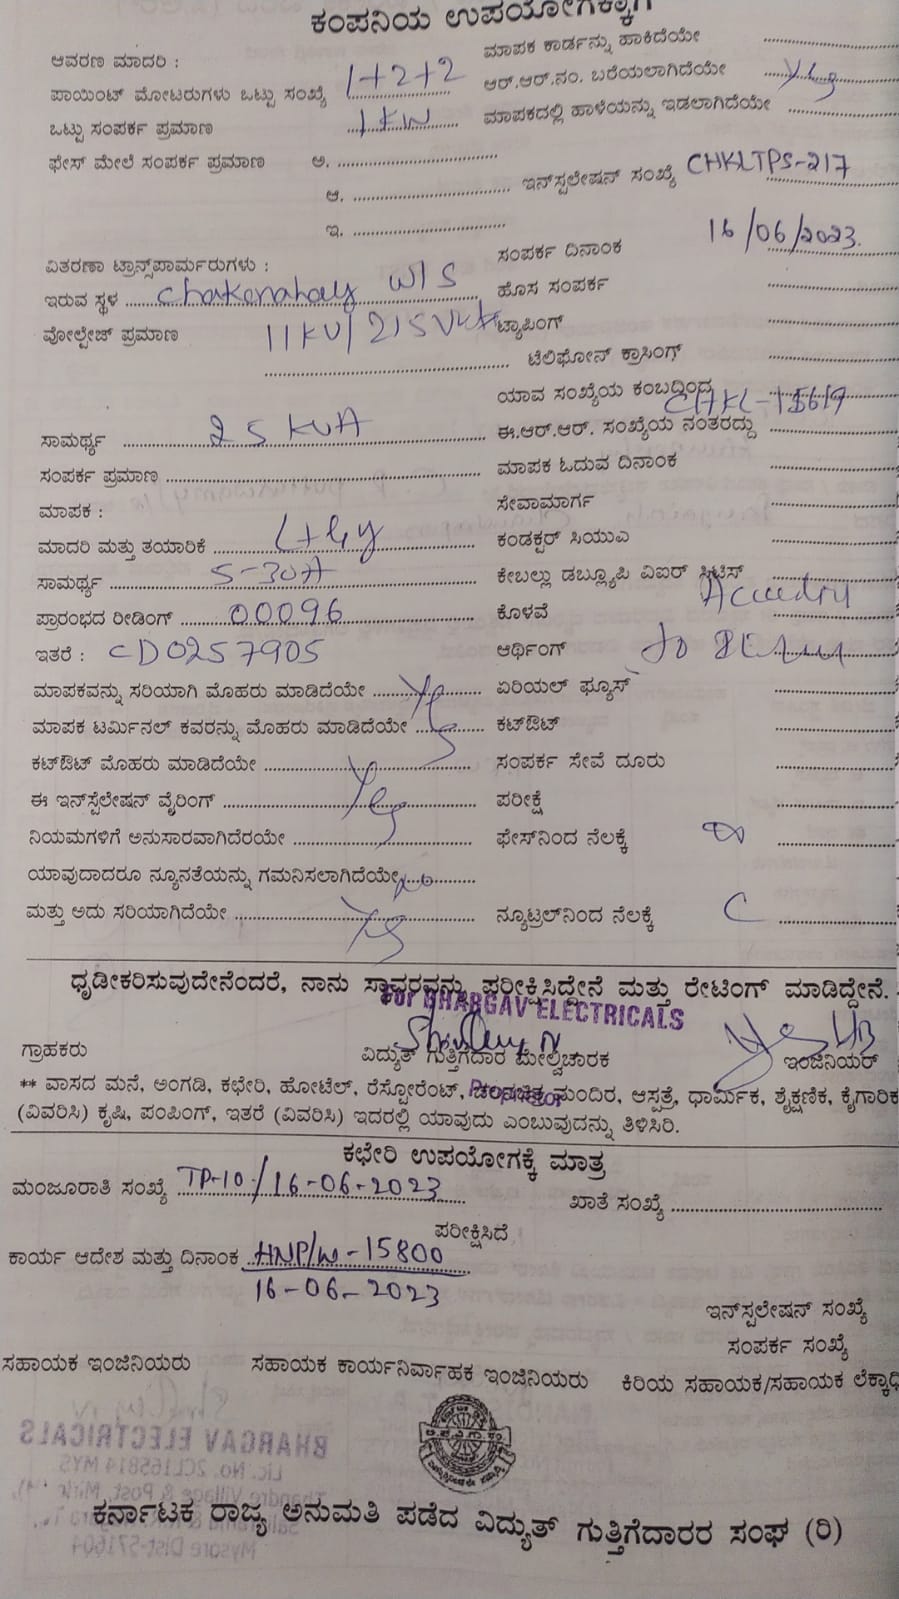 ಕಂಪನಿಯ ಉಪಯೋಗಕ್ಕಾಗಿ
ಆವರಣ ಮಾದರಿ :
ಪಾಯಿಂಟ್ ಮೋಟರುಗಳು ಒಟ್ಟು ಸಂಖ್ಯೆ 1+2+2
ಒಟ್ಟು ಸಂಪರ್ಕ ಪ್ರಮಾಣ 1KW
ಫೇಸ್ ಮೇಲೆ ಸಂಪರ್ಕ ಪ್ರಮಾಣ ಅ.
ಆ.
ಇ.
ವಿತರಣಾ ಟ್ರಾನ್ಸ್‌ಪಾರ್ಮರುಗಳು :
ಇರುವ ಸ್ಥಳ W/S
ವೋಲ್ಟೇಜ್ ಪ್ರಮಾಣ 11KV/
ಸಾಮರ್ಥ್ಯ 25 KVA
ಸಂಪರ್ಕ ಪ್ರಮಾಣ
ಮಾಪಕ :
ಮಾದರಿ ಮತ್ತು ತಯಾರಿಕೆ
ಸಾಮರ್ಥ್ಯ 5-30A
ಪ್ರಾರಂಭದ ರೀಡಿಂಗ್ 00096
ಇತರೆ : CD0257905
ಮಾಪಕವನ್ನು ಸರಿಯಾಗಿ ಮೊಹರು ಮಾಡಿದೆಯೇ Yes
ಮಾಪಕ ಟರ್ಮಿನಲ್ ಕವರನ್ನು ಮೊಹರು ಮಾಡಿದೆಯೇ
ಕಟ್‌ಔಟ್ ಮೊಹರು ಮಾಡಿದೆಯೇ
ಈ ಇನ್‌ಸ್ಟಲೇಷನ್ ವೈರಿಂಗ್ Yes
ನಿಯಮಗಳಿಗೆ ಅನುಸಾರವಾಗಿದೆರಯೇ
ಯಾವುದಾದರೂ ನ್ಯೂನತೆಯನ್ನು ಗಮನಿಸಲಾಗಿದೆಯೇ No
ಮತ್ತು ಅದು ಸರಿಯಾಗಿದೆಯೇ Yes
ಮಾಪಕ ಕಾರ್ಡನ್ನು ಹಾಕಿದೆಯೇ
ಆರ್.ಆರ್.ನಂ. ಬರೆಯಲಾಗಿದೆಯೇ Yes
ಮಾಪಕದಲ್ಲಿ ಹಾಳೆಯನ್ನು ಇಡಲಾಗಿದೆಯೇ
ಇನ್‌ಸ್ಪಲೇಷನ್ ಸಂಖ್ಯೆ CHKLTPS-217
ಸಂಪರ್ಕ ದಿನಾಂಕ 16/06/2023.
ಹೊಸ ಸಂಪರ್ಕ
ಟ್ಯಾಪಿಂಗ್
ಟೆಲಿಫೋನ್ ಕ್ರಾಸಿಂಗ್
ಯಾವ ಸಂಖ್ಯೆಯ ಕಂಬದ್ದಿಂದ
ಈ.ಆರ್.ಆರ್. ಸಂಖ್ಯೆಯ ನಂತರದ್ದು
ಮಾಪಕ ಓದುವ ದಿನಾಂಕ
ಸೇವಾಮಾರ್ಗ
ಕಂಡಕ್ಟರ್ ಸಿಯುಎ
ಕೇಬಲ್ಲು ಡಬ್ಲ್ಯೂಪಿ ವಿಐರ್
ಕೊಳವೆ
ಆರ್ಥಿಂಗ್ to
ಏರಿಯಲ್ ಫ್ಯೂಸ್
ಕಟ್‌ಔಟ್
ಸಂಪರ್ಕ ಸೇವೆ ದೂರು
ಪರೀಕ್ಷೆ
ಫೇಸ್‌ನಿಂದ ನೆಲಕ್ಕೆ
ನ್ಯೂಟ್ರಲ್‌ನಿಂದ ನೆಲಕ್ಕೆ
ಧೃಡೀಕರಿಸುವುದೇನೆಂದರೆ, ನಾನು ಸ್ಥಾವರವನ್ನು ಪರೀಕ್ಷಿಸಿದ್ದೇನೆ ಮತ್ತು ರೇಟಿಂಗ್ ಮಾಡಿದ್ದೇನೆ.
For BHARGAV ELECTRICALS
ಗ್ರಾಹಕರು ವಿದ್ಯುತ್ ಗುತ್ತಿಗೆದಾರ ಮೇಲ್ವಿಚಾರಕ ಇಂಜಿನಿಯರ್
Proprietor
** ವಾಸದ ಮನೆ, ಅಂಗಡಿ, ಕಛೇರಿ, ಹೋಟೆಲ್, ರೆಸ್ಟೋರೆಂಟ್, ಚಲನಚಿತ್ರ ಮಂದಿರ, ಆಸ್ಪತ್ರೆ, ಧಾರ್ಮಿಕ, ಶೈಕ್ಷಣಿಕ, ಕೈಗಾರಿಕ
(ವಿವರಿಸಿ) ಕೃಷಿ, ಪಂಪಿಂಗ್, ಇತರೆ (ವಿವರಿಸಿ) ಇದರಲ್ಲಿ ಯಾವುದು ಎಂಬುವುದನ್ನು ತಿಳಿಸಿರಿ.
ಕಛೇರಿ ಉಪಯೋಗಕ್ಕೆ ಮಾತ್ರ
ಮಂಜೂರಾತಿ ಸಂಖ್ಯೆ TP-10/16-06-2023 ಖಾತೆ ಸಂಖ್ಯೆ
ಪರೀಕ್ಷಿಸಿದೆ
ಕಾರ್ಯ ಆದೇಶ ಮತ್ತು ದಿನಾಂಕ HNP/W-15800
16-06-2023
ಇನ್‌ಸ್ಪಲೇಷನ್ ಸಂಖ್ಯೆ
ಸಂಪರ್ಕ ಸಂಖ್ಯೆ
ಸಹಾಯಕ ಇಂಜಿನಿಯರು ಸಹಾಯಕ ಕಾರ್ಯನಿರ್ವಾಹಕ ಇಂಜಿನಿಯರು ಕಿರಿಯ ಸಹಾಯಕ/ಸಹಾಯಕ ಲೆಕ್ಕಾಧಿ
BHARGAV ELECTRICALS
Lic. No. 2CL165814 MYS
ಕರ್ನಾಟಕ ರಾಜ್ಯ ಅನುಮತಿ ಪಡೆದ ವಿದ್ಯುತ್ ಗುತ್ತಿಗೆದಾರರ ಸಂಘ (ರಿ)
Mysore Dist-571604